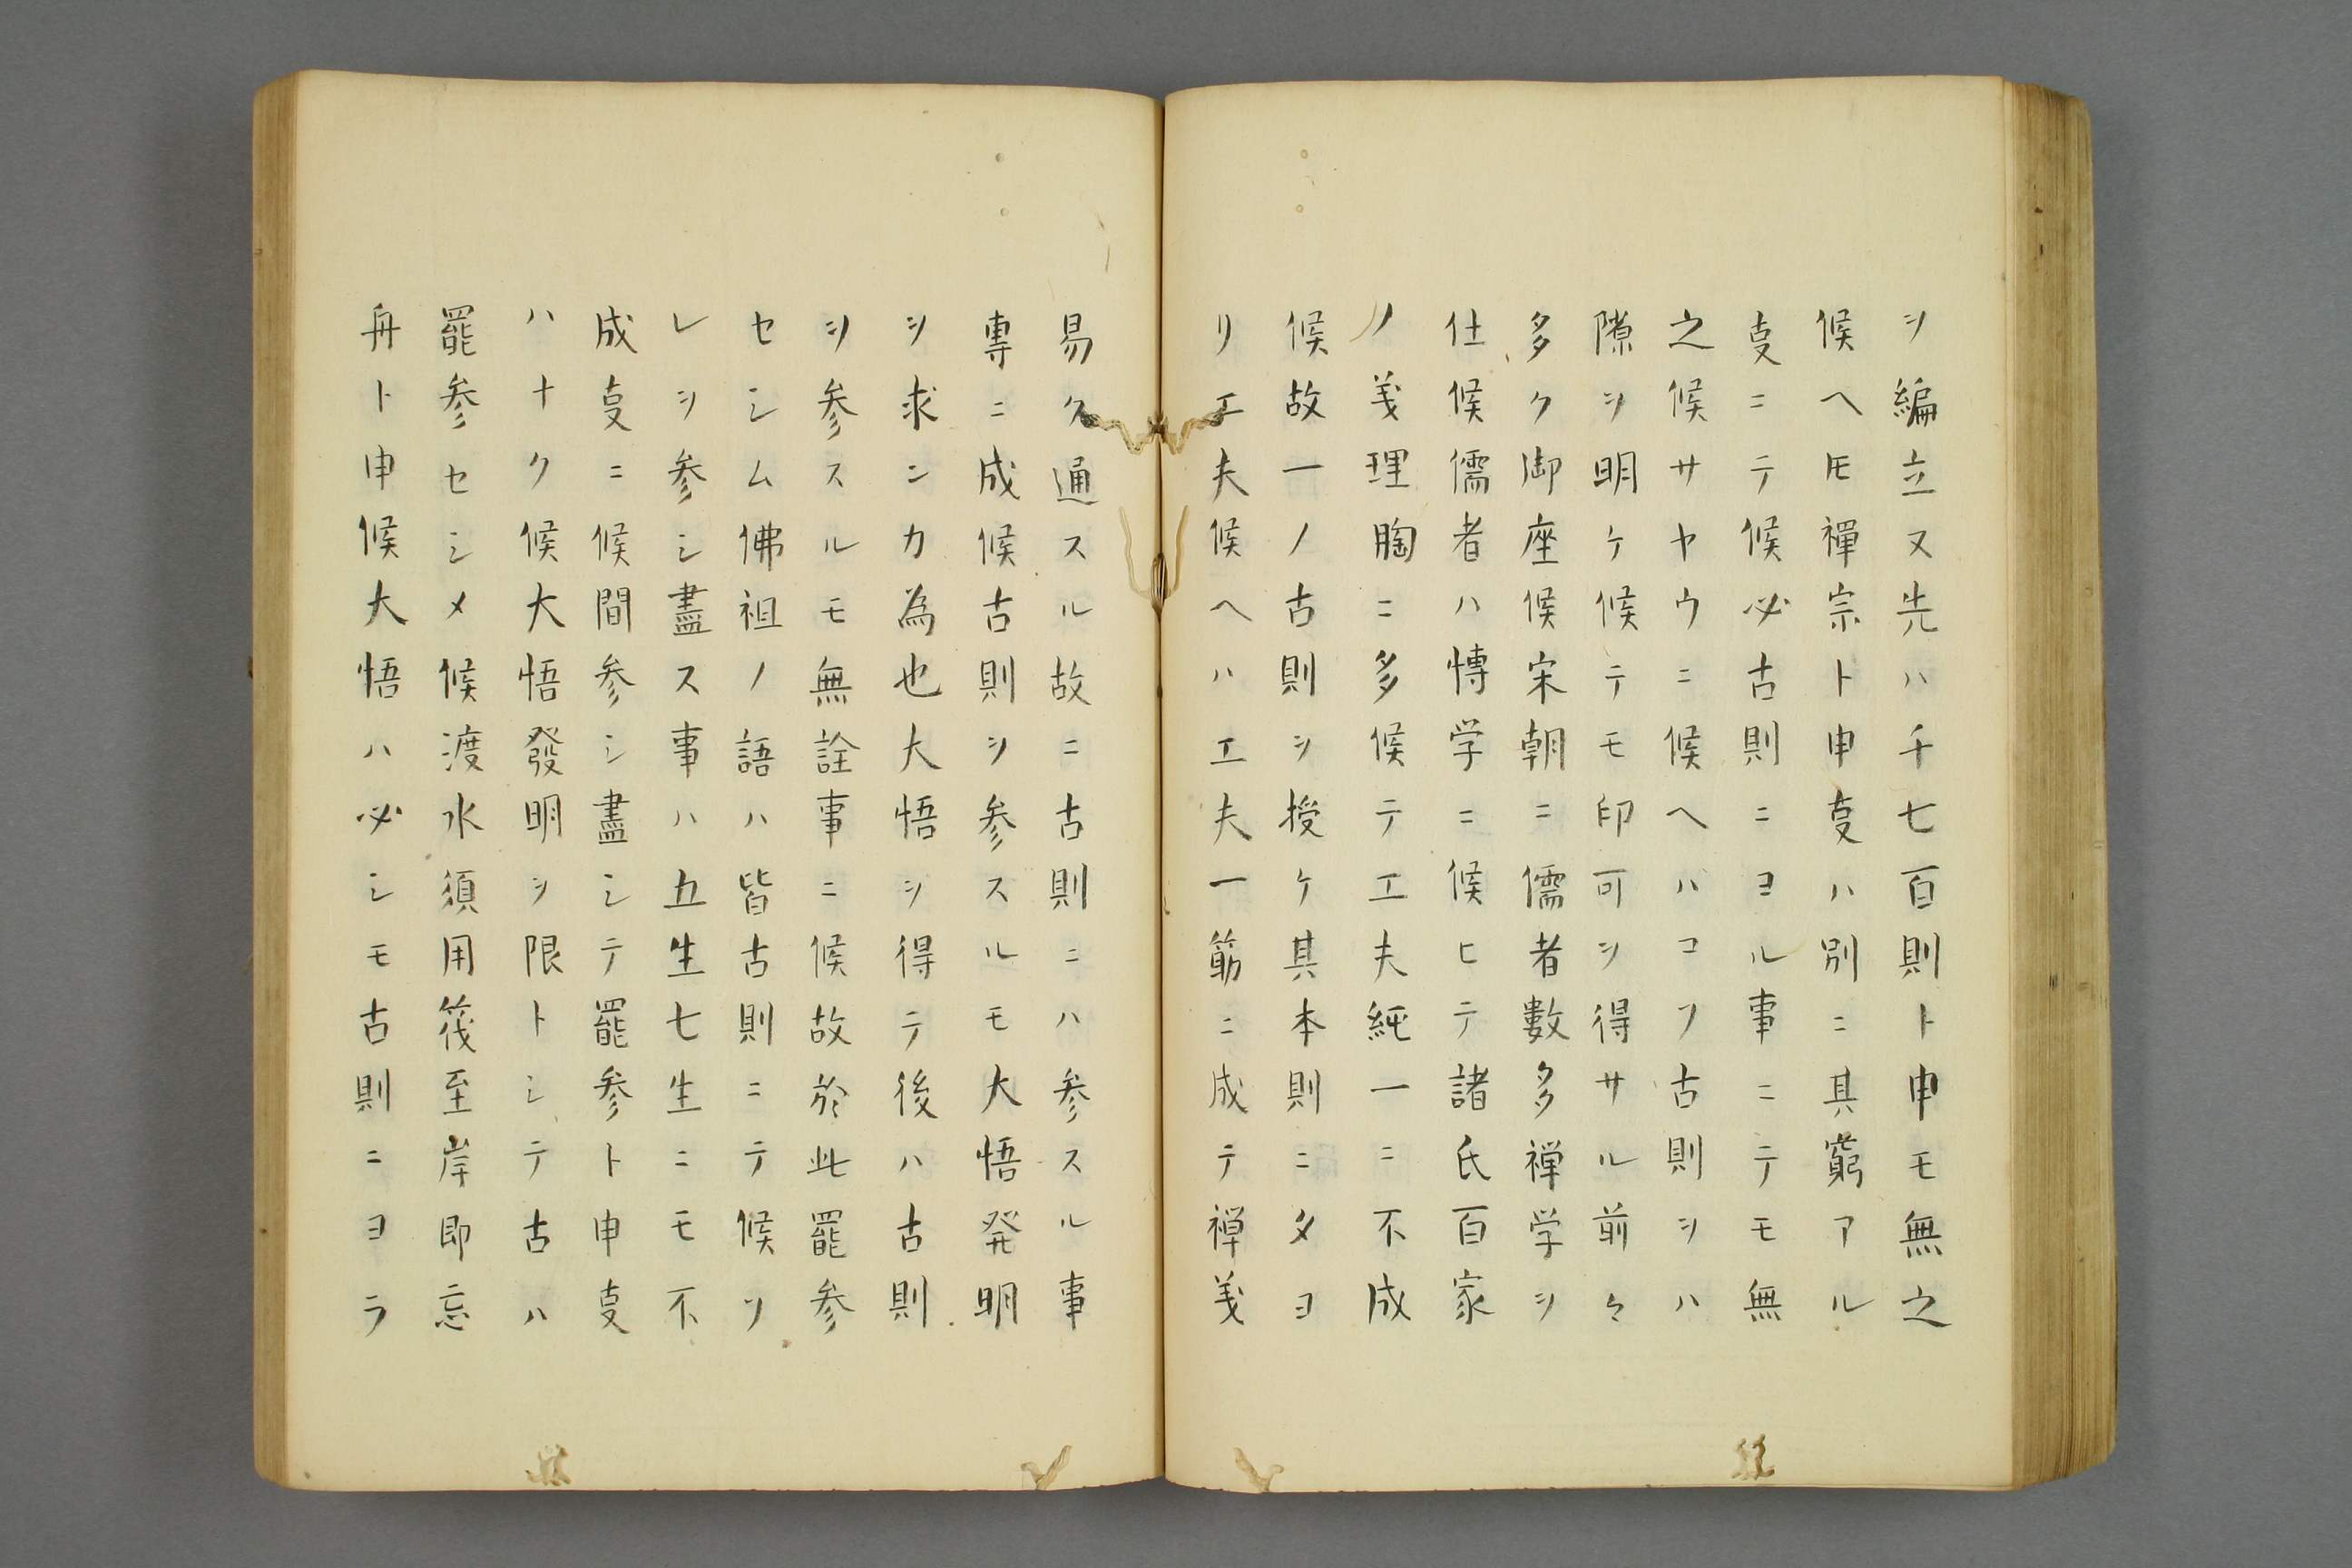 ヲ編立又先ハ千七百則ト申モ無之
候ヘ𪜈禪宗ト申叓ハ別ニ其窮アル
叓ニテ候必古則ニヨル事ニテモ無
之候サヤウニ候ヘハコソ古則ヲハ
隙ヲ明ケ候テモ印可ヲ得サル前々
多ク御座候宋朝ニ儒者數多禅学ヲ
仕候儒者ハ博学ニ候ヒテ諸氏百家
ノ義理胸ニ多候テ工夫純一ニ不成
候故一ノ古則ヲ授ケ其本則ニタヨ
リ工夫候ヘハ工夫一筋ニ成テ禅義
易ク通スル故ニ古則ニハ参スル事
專ニ成候古則ヲ参スルモ大悟発明
ヲ求ンカ為也大悟ヲ得テ後ハ古則
ヲ参スルモ無詮事ニ候故於此罷参
セシム佛祖ノ語ハ皆古則ニテ候ソ
レヲ参シ盡ス事ハ五生七生ニモ不
成叓ニ候間参シ盡シテ罷参ト申叓
ハナク候大悟發明ヲ限トシテ古ハ
罷参セシメ候渡水須用筏至岸即忘
舟ト申候大悟ハ必シモ古則ニヨラ